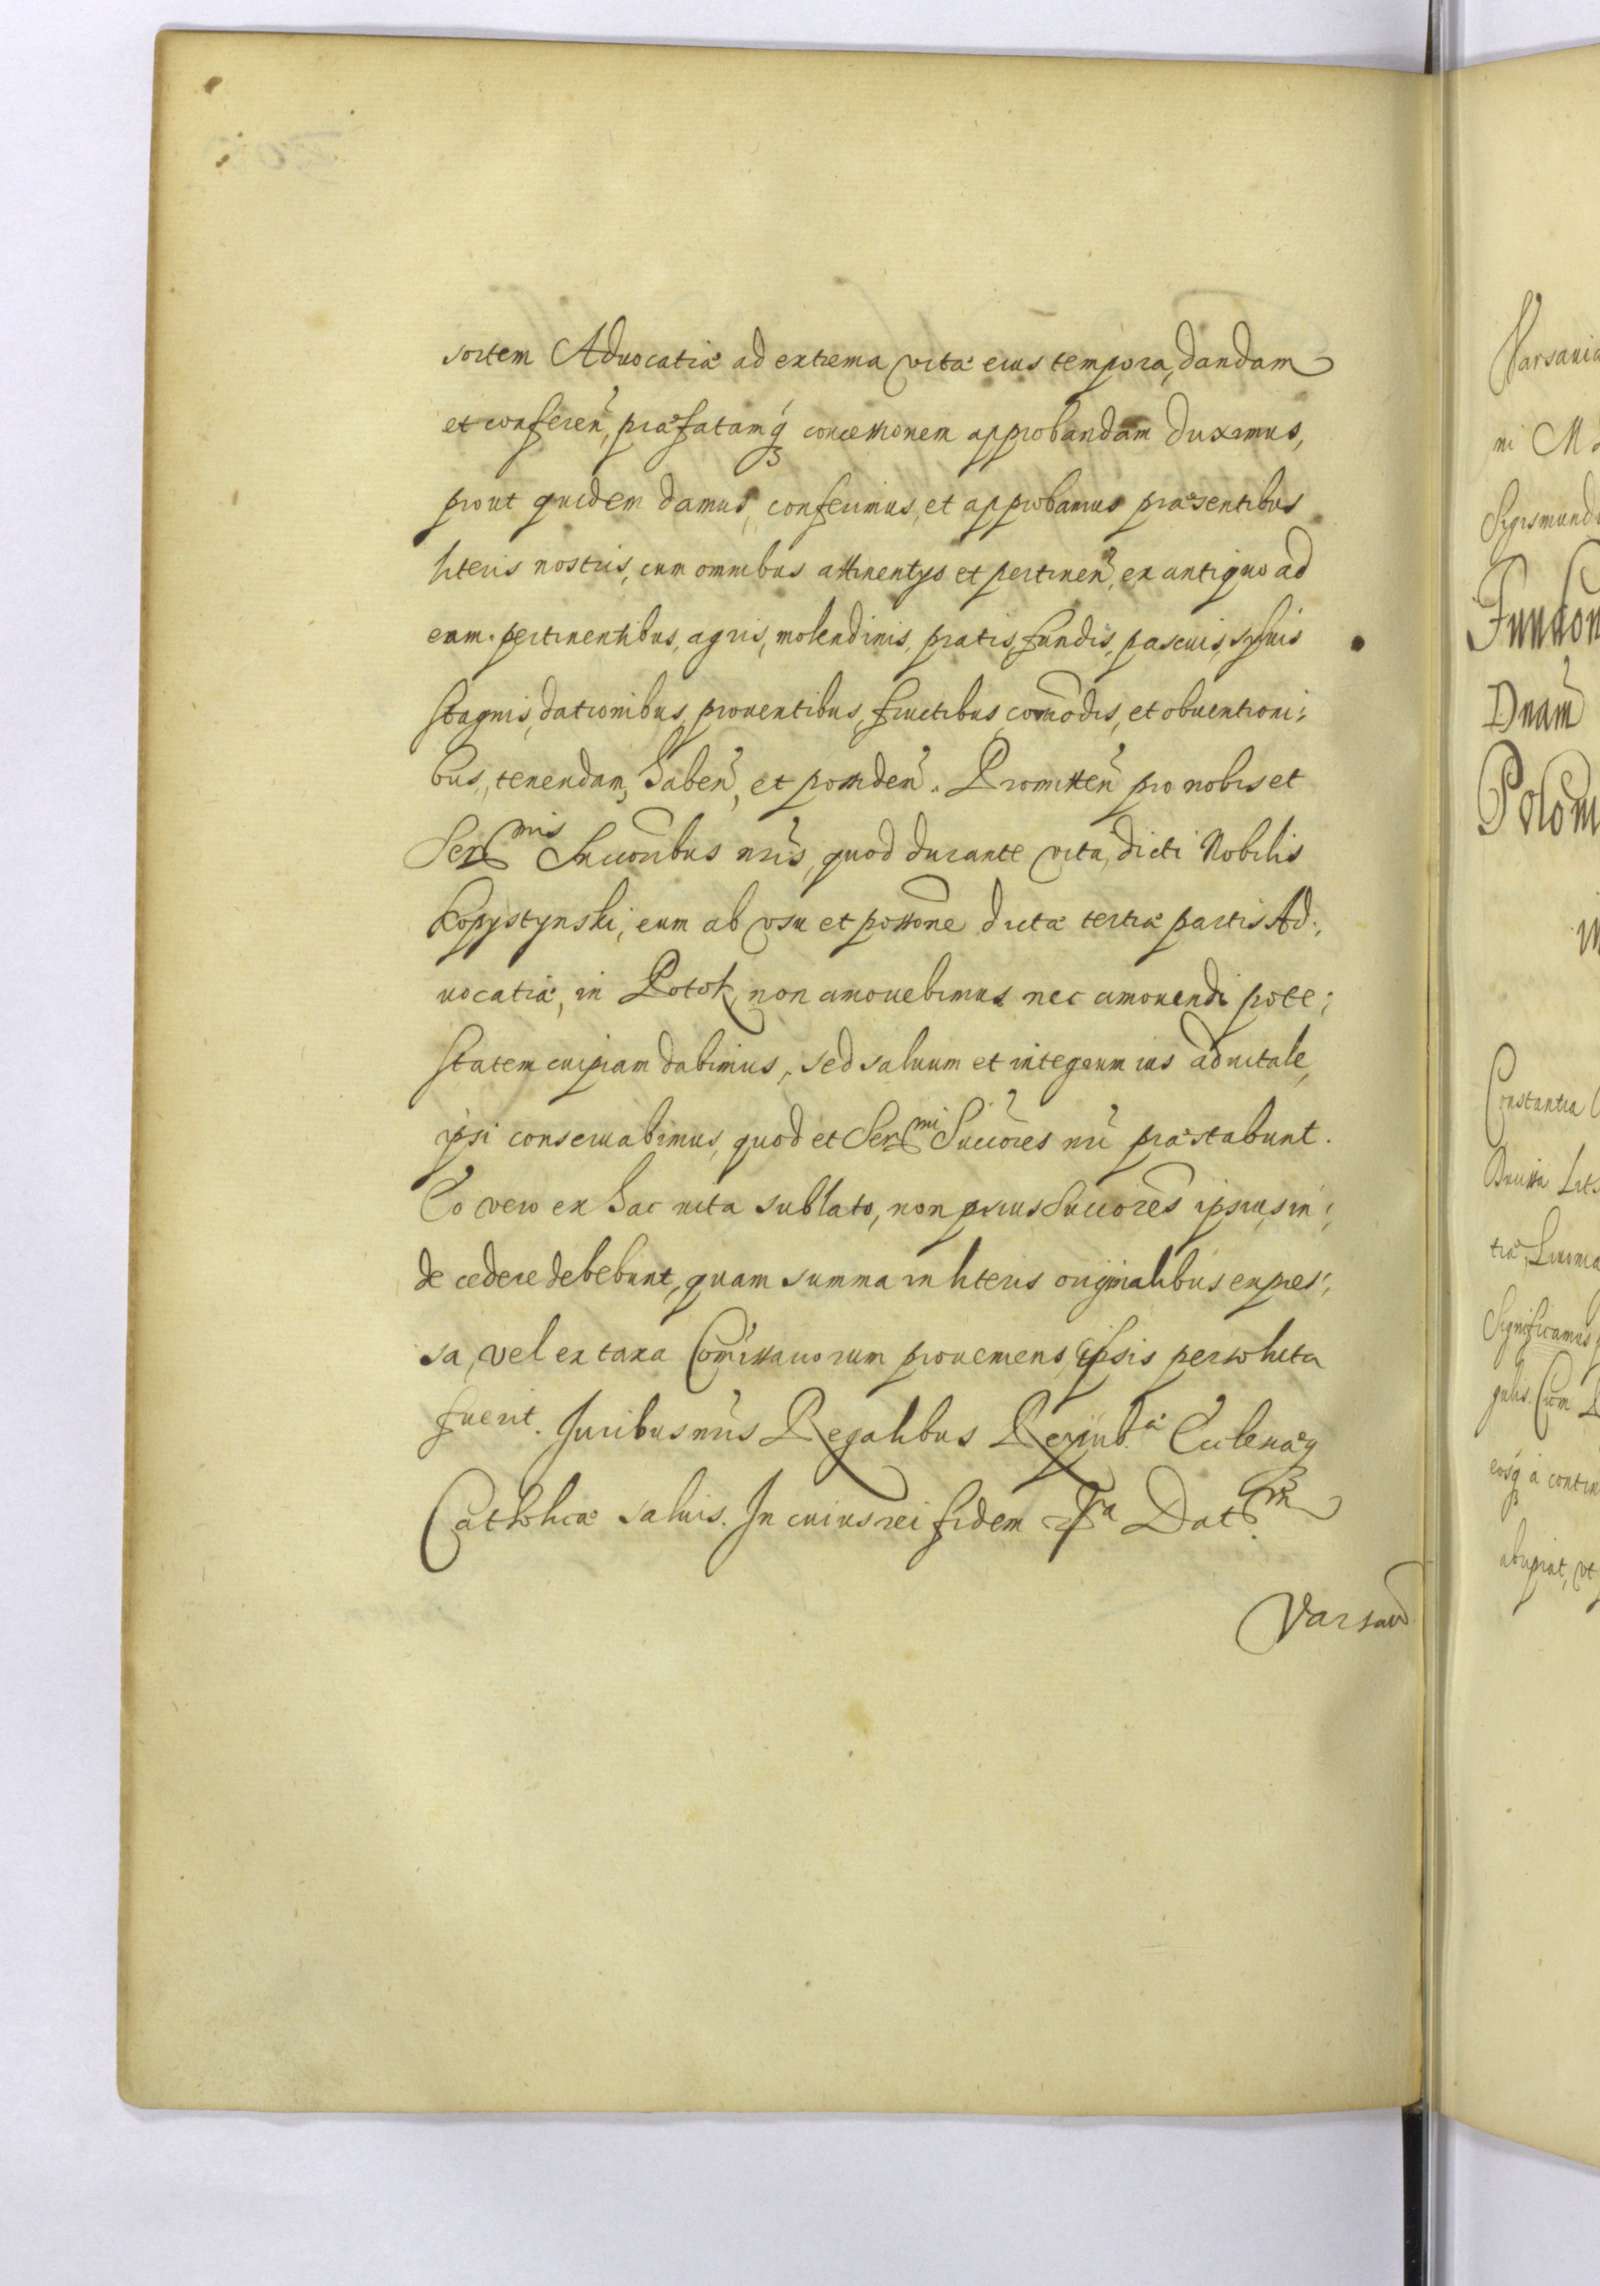 sortem Aduocatiæ ad extrema vitæ eius tempora, dandam
et conferen̄, præfatamq́ concessionem approbandam duximus,
prout quidem damus, conferimus, et approbamus præsentibus
literis nostris, cum omnibus attinentys et pertinen̄, ex antiquo ad
eam pertinentibus, agris, molendinis, pratis, fundis, pascuis, syluis
stagnis, dationibus, prouentibus, fructibus, com̄odis, et obuentioni:
bus, tenendam, haben̄, et possiden̄. Promitten̄ pro nobis et
Ser^mis Succoribus nr̄is, quod durante vita, dicti Nobilis
Kopystynski, eum ab vsu et possone dictæ tertiæ partis Ad:
uocatiæ, in Potok, non amouebimus nec amouendi pote:
statem cuipiam dabimus, sed saluum et integrum ius aduitale,
ipsi conseruabimus, quod et Ser^mi Succores nr̄i præstabunt.
Eo vero ex hac uita sublato, non prius Succores ipsius in:
de cedere debebunt, quam summa in literis originalibus expres:
sa, vel ex taxa Com̄issariorum proueniens, ipsis persoluta
fuerit. Juribus nr̄is Regalibus Reipub^æ Ecclesiæq
Catholicæ saluis. In cuius rei fidem Dat^m
Varsau
Varsauia
ni M
Sigismund
Dnam̄
Polon
Constantia
tiæ, Liuonia
Significamus
gulis. Cum
eosq́ à contin
abripiat, vt